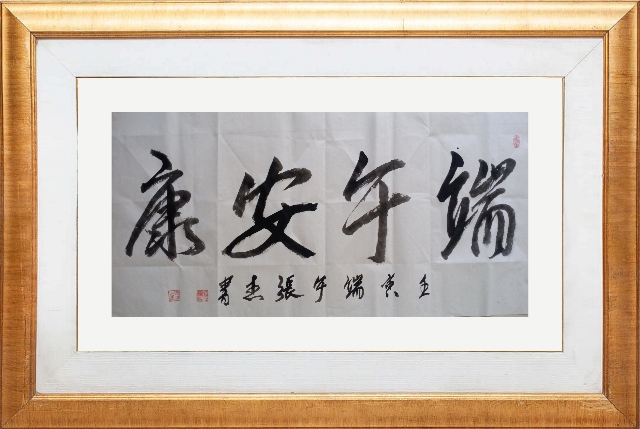 端午安康
壬寅端午張杰書